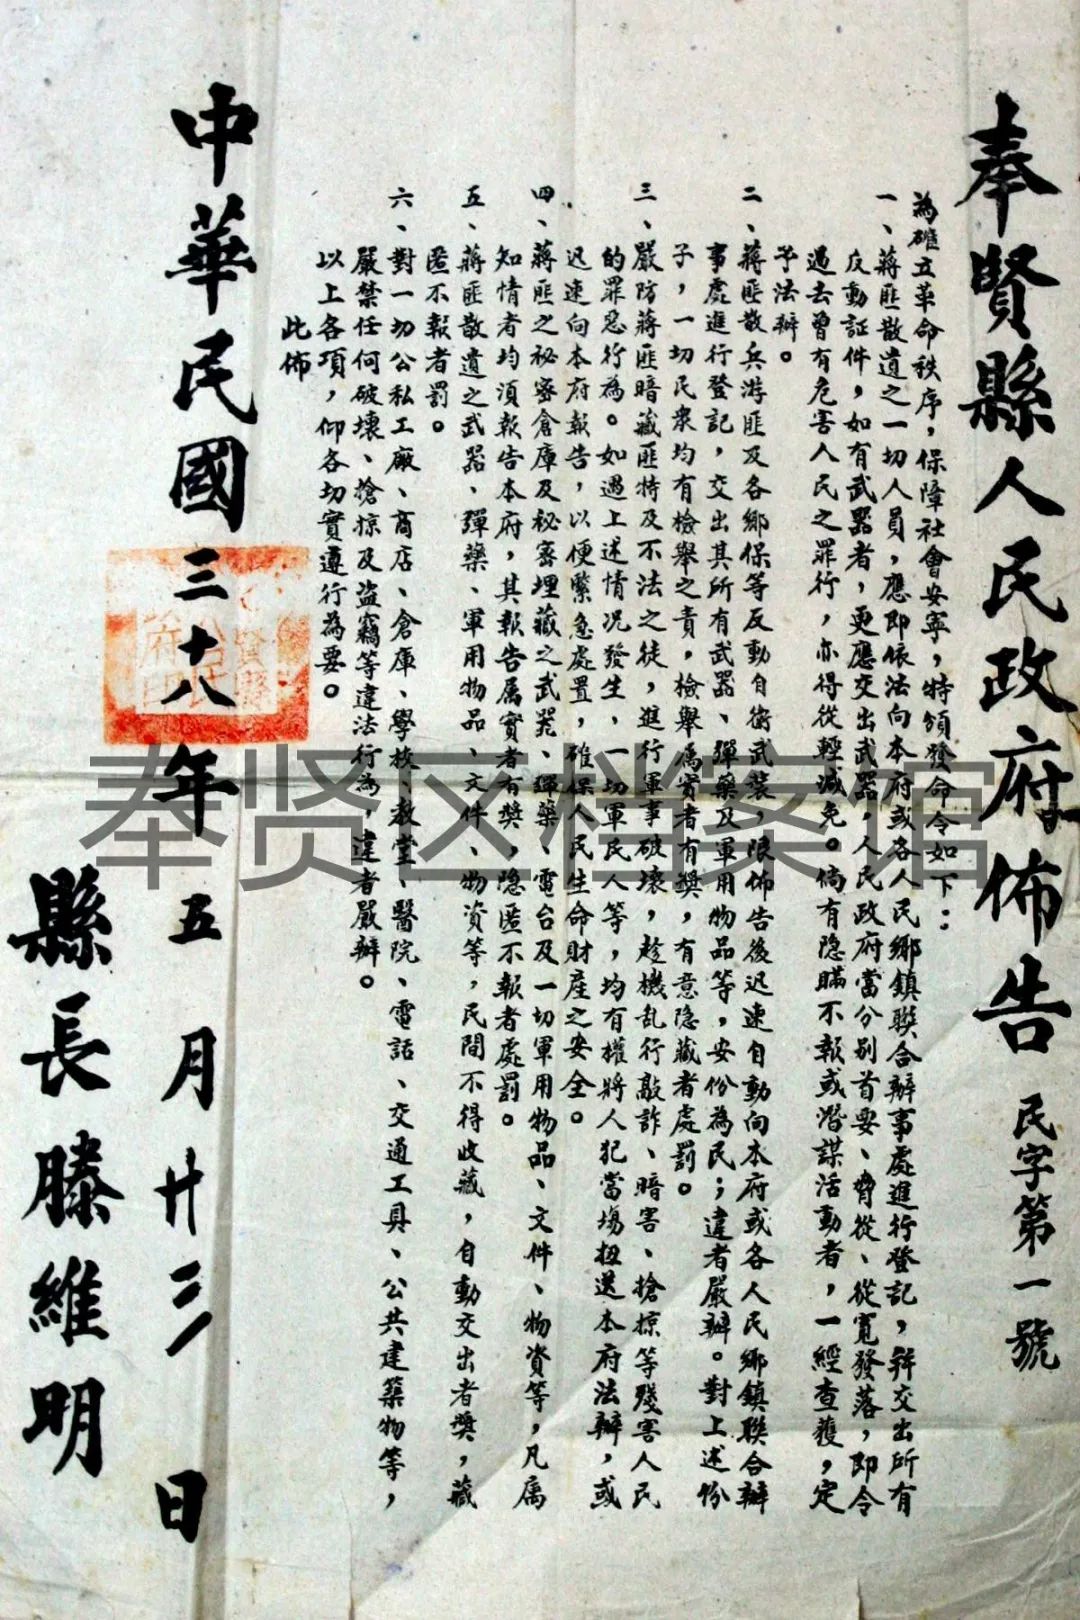 奉賢縣人民政府佈告
民字第一號
為確立革命秩序，保障社會安寧，特頒發命令如下：
一、蔣匪散遺之一切人員，應即依法向本府或各人民鄉鎮聯合辦事處進行登記，並交出所有
反動証件，如有武器者，更應交出武器，人民政府當分别首要、脅從、從寬發落，即令
過去曾有危害人民之罪行，亦得從輕減免。倘有隐瞞不報或潛謀活動者，一經查獲，定
予法辦。
二、蔣匪散兵游匪及各鄉保等反動自衛武裝，限佈告後迟速自動向本府或各人民鄉鎮聯合辦
事處進行登記，交出其所有武器、彈藥及軍用物品等，安份為民；違者嚴辦。對上述份
子，一切民衆均有檢舉之責，檢舉属實者有獎，有意隐藏者處罰。
三、嚴防蔣匪暗藏匪特及不法之徒，進行軍事破壞，趁機乱行敲詐、暗害、搶掠等殘害人民
的罪惡行為。如遇上述情况發生、一切軍民人等，均有權將人犯當場扭送本府法辦，或
迟速向本府報告，以便緊急處置，確保人民生命財產之安全。
四、蔣匪之秘密倉庫及秘密埋藏之武器、彈藥、電台及一切軍用物品、文件、物資等，凡属
知情者均須報告本府，其報告属實者有獎，隐匿不報者處罰。
五、蔣匪散遺之武器、彈藥、軍用物品、文件、物資等，民間不得收藏，自動交出者獎，藏
匿不報者罰。
六、對一切公私工廠、商店、倉庫、學校、教堂、醫院、電話、交通工具、公共建築物等，
嚴禁任何破壞、搶掠及盗竊等違法行為，違者嚴辦。
以上各項，仰各切實遵行為要。
此佈
中華民國三十八年五月廿三日
縣長滕維明
奉贤区档案馆